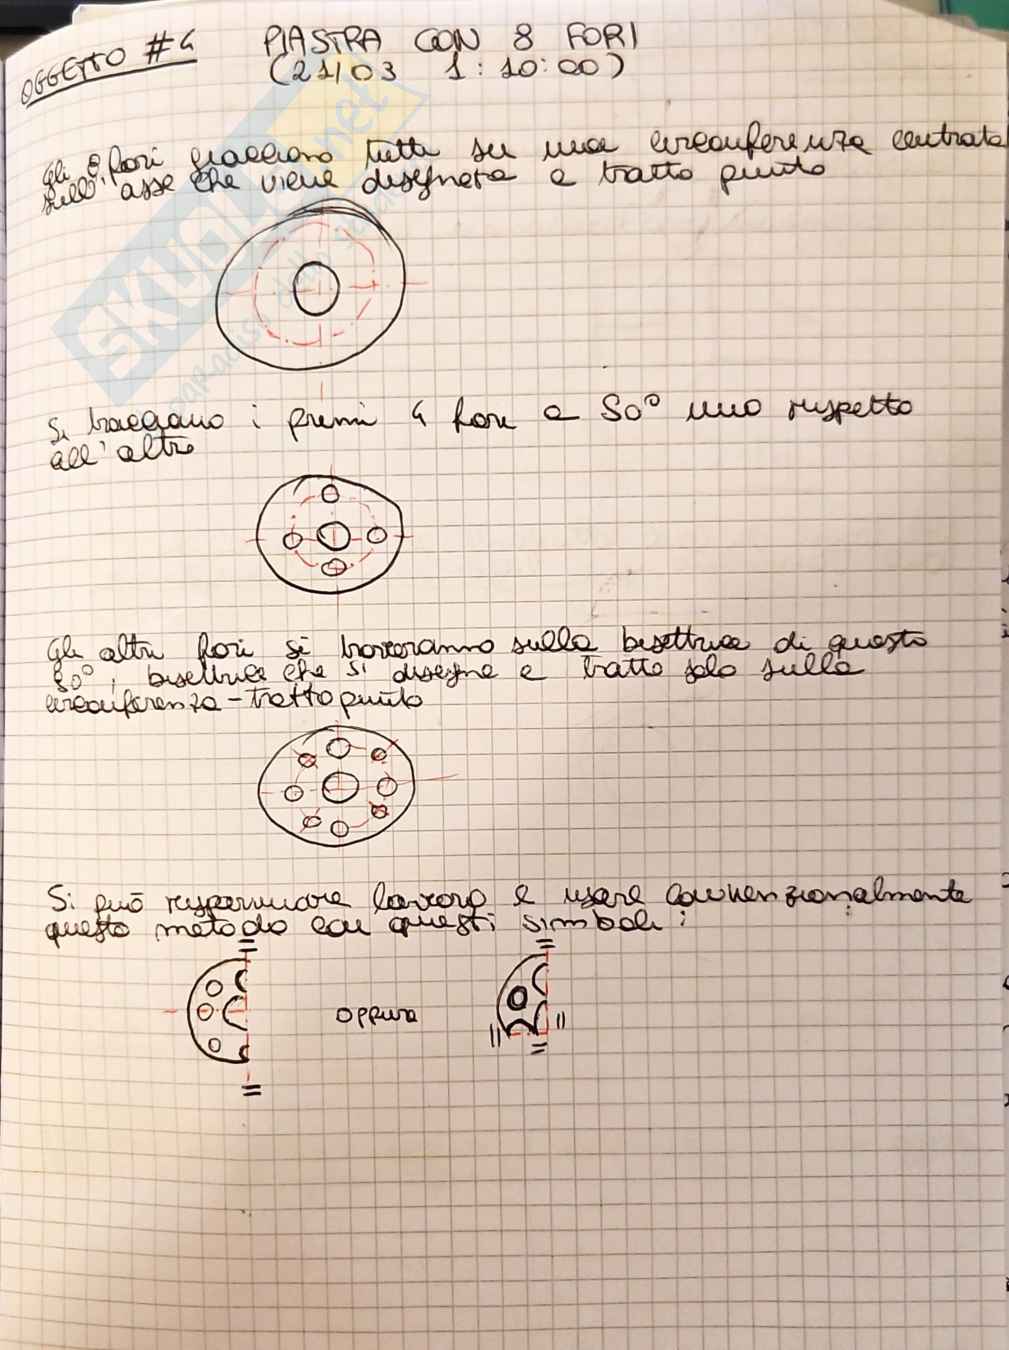 OGGETTO #4 PIASTRA CON 8 FORI
(21/03 1:10:00)
Gli 8 fori giacciono tutti su una circonferenza centrata
sull'asse che viene disegnata a tratto punto
Si tracciano i primi 4 fori a 90° uno rispetto
all'altro
Gli altri fori si troveranno sulla bisettrice di questo
90°, bisettrice che si disegna a tratto solo sulla
circonferenza-tratto punto
Si può risparmiare lavoro e usare convenzionalmente
questo metodo con questi simboli:
oppure